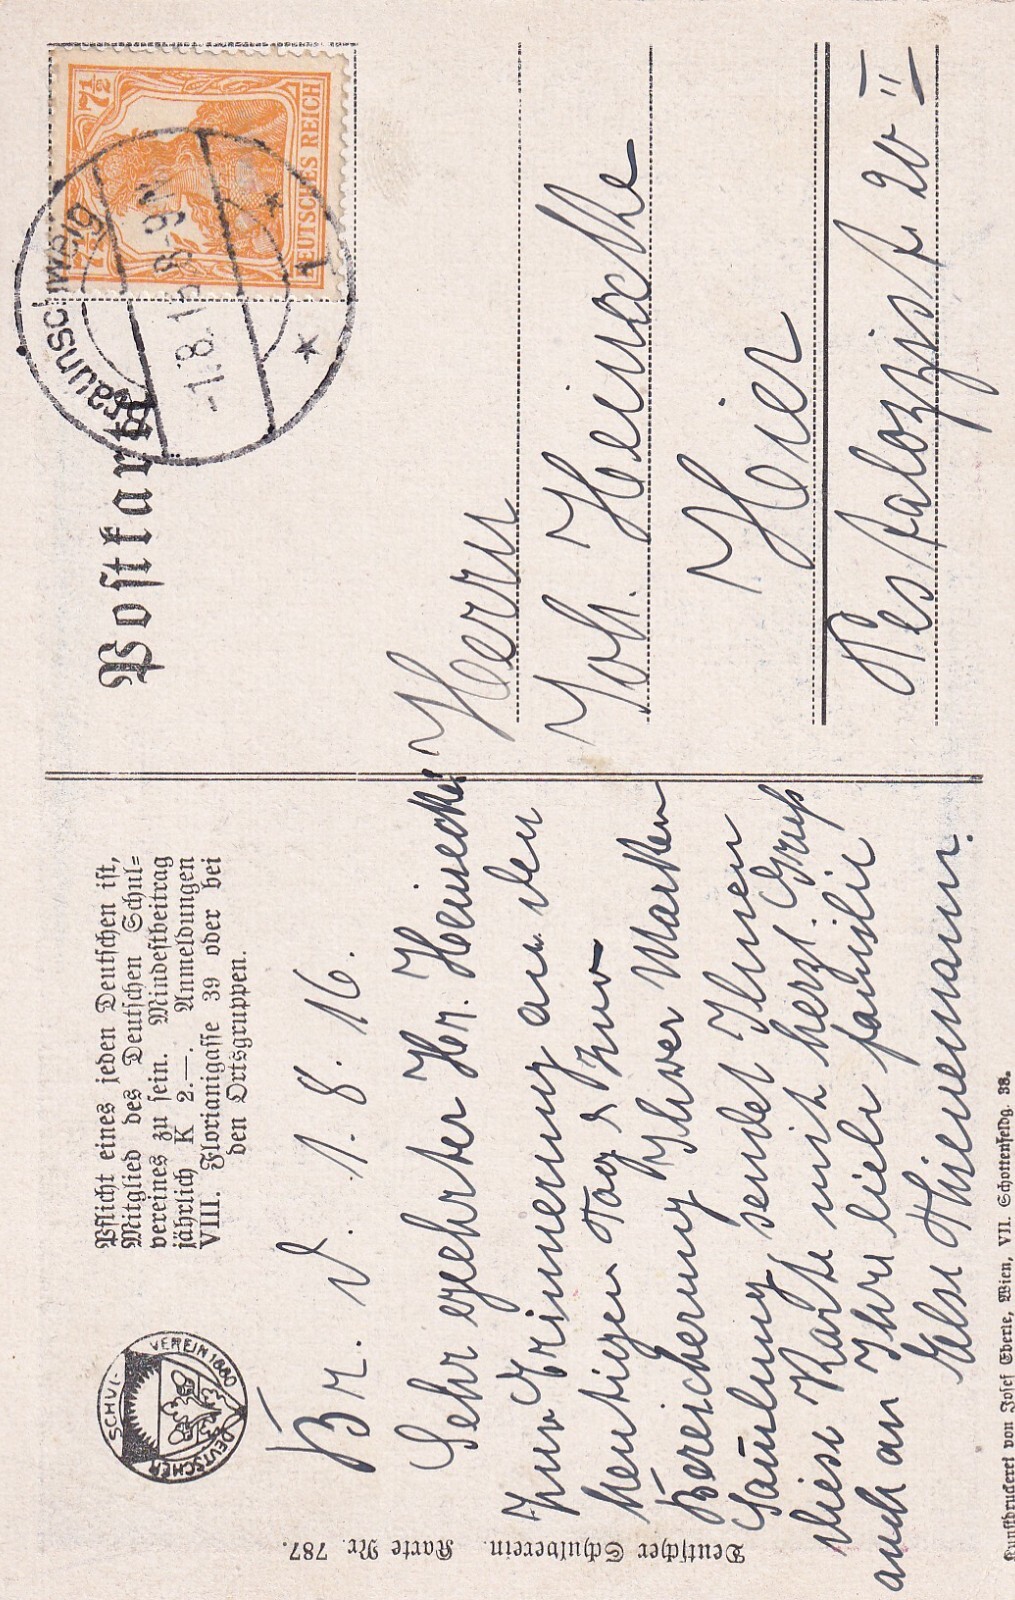 SCHUL-
VEREIN 1880
DEUTSCHER
Pflicht eines jeden Deutschen ist,
Mitglied des Deutschen Schul-
vereines zu sein. Mindestbeitrag
jährlich K 2.—. Anmeldungen
VIII. Florianigasse 39 oder bei
den Ortsgruppen.
Br. d. 1. 8. 16.
Sehr geehrter Hr. Heinecke
Zur Erinnerung an den
heutigen Tag & zur
Bereicherung Ihrer Marken
Samlung sendet Ihnen
diese Karte mit herzl. Gruß
auch an Ihre liebe familie
Else Thienemann.
Deutscher Schulverein. Karte Nr. 787.
Postkarte
7½
7½
DEUTSCHES REICH
Braunschweig
-1.8.16.8-9N
1
Herrn
Joh. Heinecke
Hier
Pestalozzistr. 20 II
Kunstdruckerei von Josef Eberle, Wien, VII. Schottenfeldg. 38.